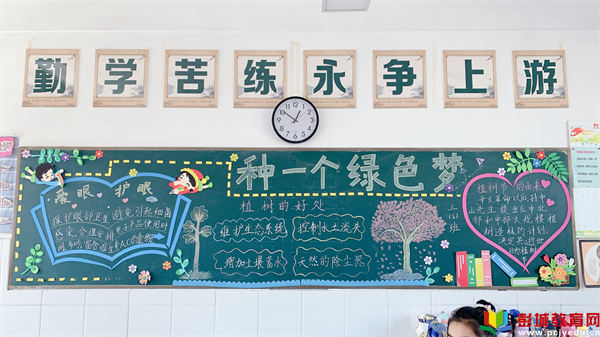 勤学苦练永争上游
种一个绿色梦
爱眼·护眼
保护眼部卫生
避免引起细菌
感染,合理安排
电子产品使用时
植树的好处
维护生态系统
控制水土流失
增加土壤蓄水
天然的除尘器
二(3)
班
植树节的由来
孙中
山先生
大规模植
树造林的计划
彭城教育网
www.pcjyedu.cn